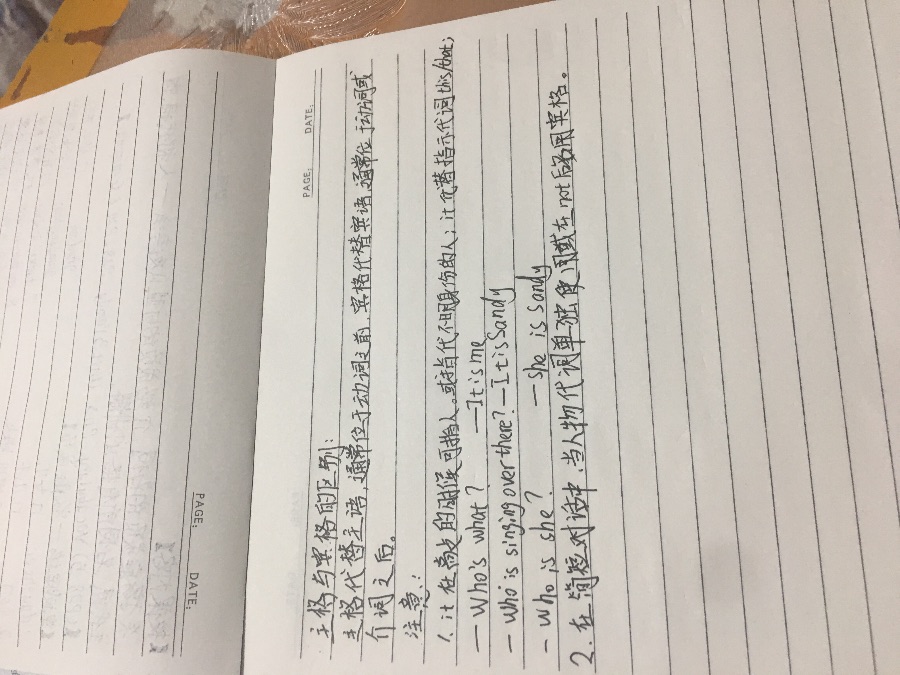 PAGE:
DATE:
PAGE:
DATE:
主格与宾格的区别:
主格代替主语,通常位于动词之前,宾格代替宾语,通常位于动词或
介词之后。
注意:
1. it 在高点的时候可指人。或指代不明身份的人; it 代替指示代词this/that;
— Who's what? —It is me
— Who is singing over there? —It is Sandy
— who is she? — she is sandy
2. 在简短对话中,当人物代词单独使用或在 not 后多用宾格。